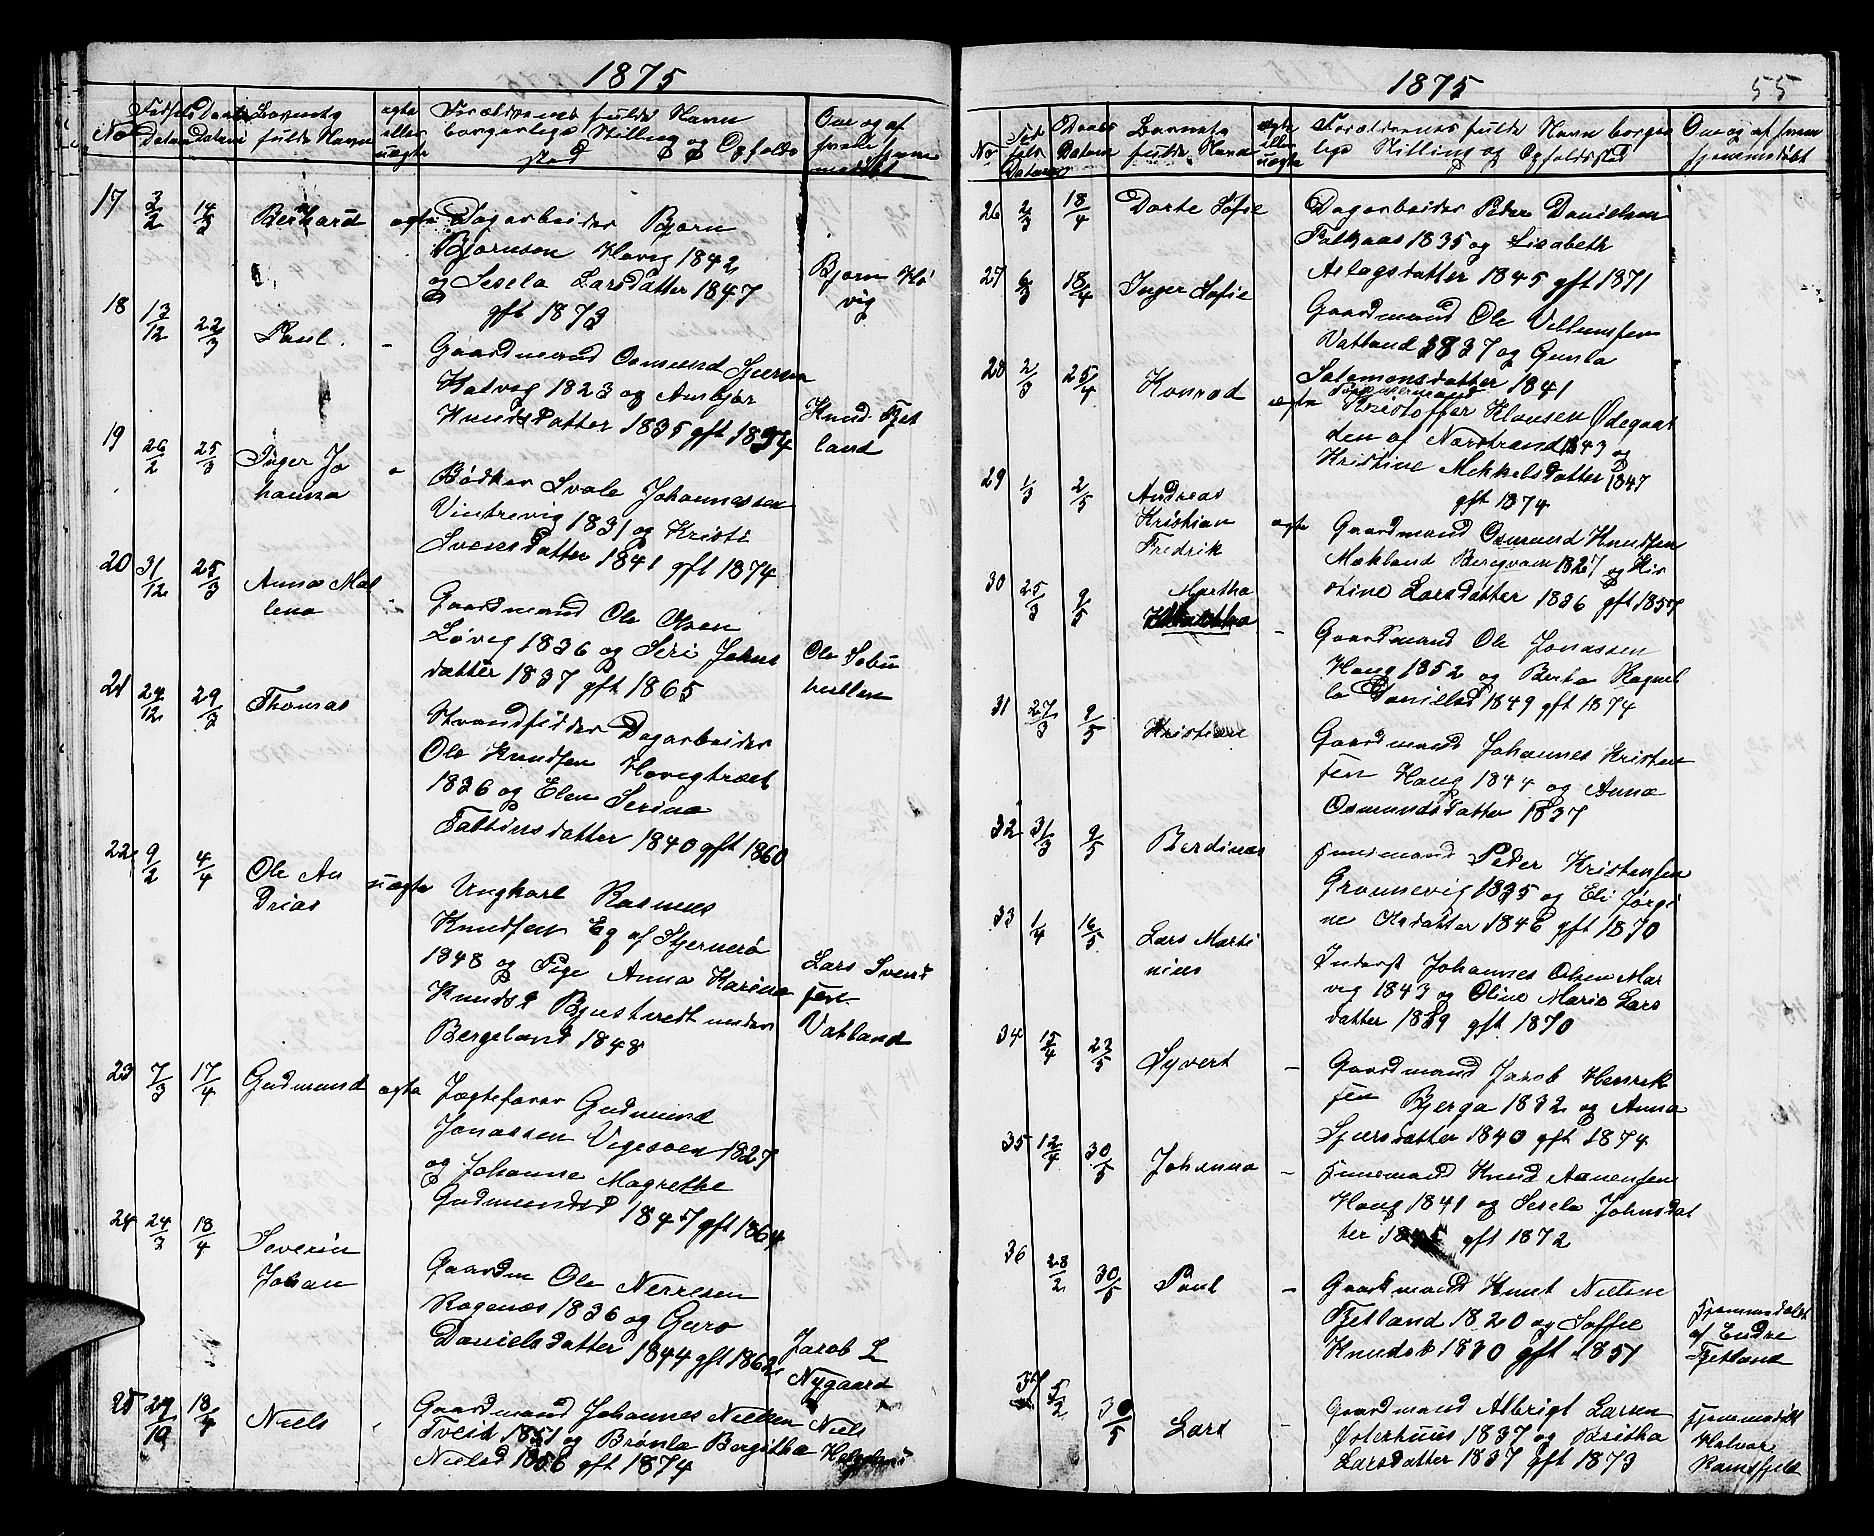 1875
No
Fødsels Datum
Daabs Datum
Barnets fulde Navn
ægte eller uægte
Forældrenes fulde Navn
borgerlige Stilling og Opholds
sted
Om og af
hvem
17 3/2 14/3 Berhard ægte Dagarbeider Bjørn
Bjørnsen Høvig 1842
og Sesela Larsdatter 1847
gft 1873
Bjørn Hø
vig
18 13/12 22/3 Paul - Gaardmand Osmund Sjursen
Hatvig 1823 og Ansbjør
Knudsdatter 1835 gft 1854
Knud Fjet
land
19 26/2 25/3 Inger Jo
hanna
Bødker Svale Johannessen
Vintrevig 1831 og Kristi
Svensdatter 1841 gft 1874
20 31/12 25/3 Anna Mal
lena
Gaardmand Ole Olsen
Løvig 1836 og Seri Johns
datter 1837 gft 1865
Ole
21 24/12 29/3 Thomas
Strandsidder Dagarbeider
Ole Knudsen Høvigtræet
1836 og Elen Serina
datter 1840 gft 1860
22 9/2 4/4 Ole An
drias
uægte Ungkarl Rasmus
Knudsen Eg af Stjernerø
1848 og Pige Anna Karina
Knudsd under
Bergeland 1848
Lars Svend
sen
Vatland
23 7/3 17/4 Gudmund ægte Jægtefører Gudmund
Jonassen 1827
og Johanne Magrethe
Gudmundsd 1847 gft 1864
24 24/3 18/4 Severin
Johan
Gaardm Ole
Ragenæs 1836 og Guro
Danielsdatter 1844 gft 1862
Jacob L
Nygaard
25 29/10 18/4 Niels
Gaardmand Johannes Nielsen
Tveid 1851 og Brønla Bergitha
Nielsd 1856 gft 1874
Niels
1875
55
No
Fødsels Datum
Daabs Datum
Barnets fulde Navn
ægte eller uægte
Forældrenes fulde Navn borger
lige Stilling og Opholdssted
Om og af hvem
hjemmedøbt
26 2/3 18/4 Dorte Sofie Dagarbeider Peder Danielsen
Falkaas 1835 og Lisabeth
Aslagsdatter 1845 gft 1871
27 6/3 18/4 Inger Sofie
Gaardmand Ole Villumsen
Vatland 1837 og Gunla
Salamonsdatter 1841
28 2/3 25/4 Konrad ægte
Kristoffer Klausen Ødegaar
den af Narstrand 1843 og
Kristine Mikkelsdatter 1847
gft 1874
29 1/3 2/5 Andreas
Kristian
Fredrik
ægte Gaardmand Osmund Knudsen
Mækland 1827 og Kir
stine Larsdatter 1836 gft 1857
30 25/3 9/5 Martha
- Gaardmand Ole Jonassen
Haug 1852 og Berta Ragnil
la Danielsd 1849 gft 1874
31 27/3 9/5 Kristiane
Gaardmand Johannes Kristen
sen Haug 1844 og Anna
Osmundsdatter 1837
32 31/3 9/5 Berdinas
Huusmand Peder Kristensen
Grønnevig 1835 og Eli Jørgi
ne datter 1846 gft 1870
33 1/4 16/5 Lars Marti
nius
Inderst Johannes Olsen Mar
vig 1843 og Oline Marie Lars
datter 1839 gft 1870
34 15/4 23/5 Syvert - Gaardmand Jacob Henrik
sen Bjerga 1832 og Anna
Sjursdatter 1840 gft 1874
35 12/4 30/5 Johanna - Huusmand Knud Aanensen
Haug 1841 og Sesela Johnsdat
ter gft 1872
36 28/2 30/5 Paul - Gaardmand Knut Nielsen
Fjetland 1820 og Soffie
Knudsd 1830 gft 1851
Hjemmedøbt
af Endre
Fjetland
37 5/2 30/5 Lars - Gaardmand Albrigt Larsen
Østerhuus 1837 og Britha
Larsdatter 1837 gft 1873
Hjemmedøbt
Halvor
Ramsfjeld